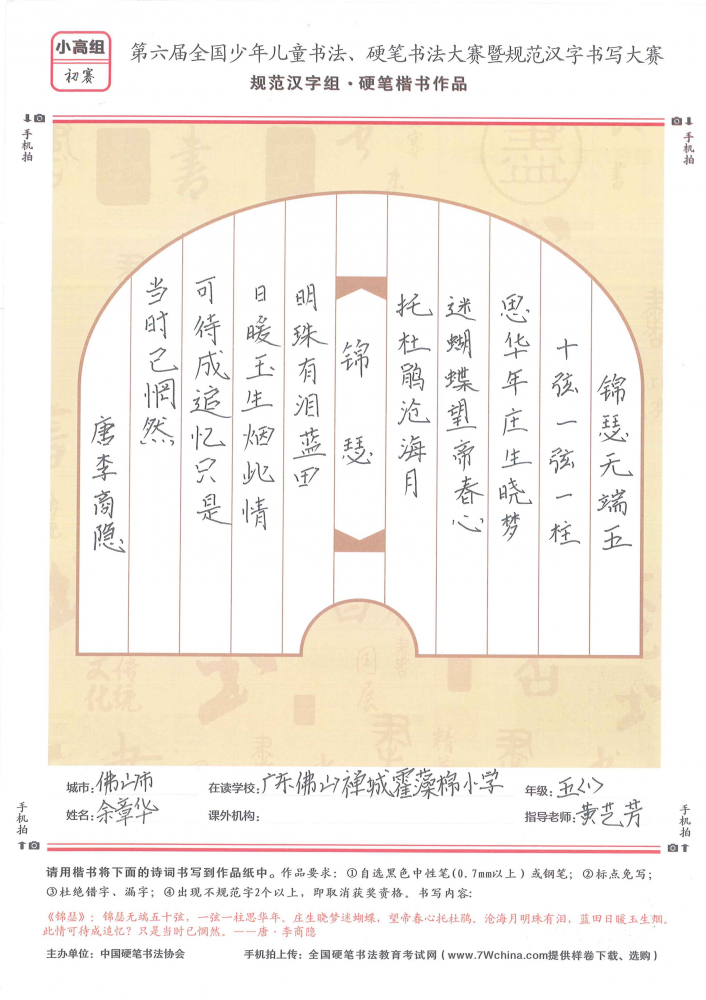 小高组
初赛
第六届全国少年儿童书法、硬笔书法大赛暨规范汉字书写大赛
规范汉字组·硬笔楷书作品
手机拍
手机拍
锦瑟无端五
十弦一弦一柱
思华年庄生晓梦
迷蝴蝶望帝春心
托杜鹃沧海月
锦瑟
明珠有泪蓝田
日暖玉生烟此情
可待成追忆只是
当时已惘然
唐李商隐
城市：佛山市
在读学校：广东佛山禅城霍藻棉小学
年级：五（）
姓名：余章华
课外机构：
指导老师：黄艺芳
手机拍
手机拍
请用楷书将下面的诗词书写到作品纸中。作品要求：①自选黑色中性笔(0.7mm以上)或钢笔；②标点免写；
③杜绝错字、漏字；④出现不规范字2个以上，即取消获奖资格。书写内容：
《锦瑟》：锦瑟无端五十弦，一弦一柱思华年。庄生晓梦迷蝴蝶，望帝春心托杜鹃。沧海月明珠有泪，蓝田日暖玉生烟。
此情可待成追忆？只是当时已惘然。——唐·李商隐
主办单位：中国硬笔书法协会
手机拍上传：全国硬笔书法教育考试网（www.7Wchina.com提供样卷下载、选购）